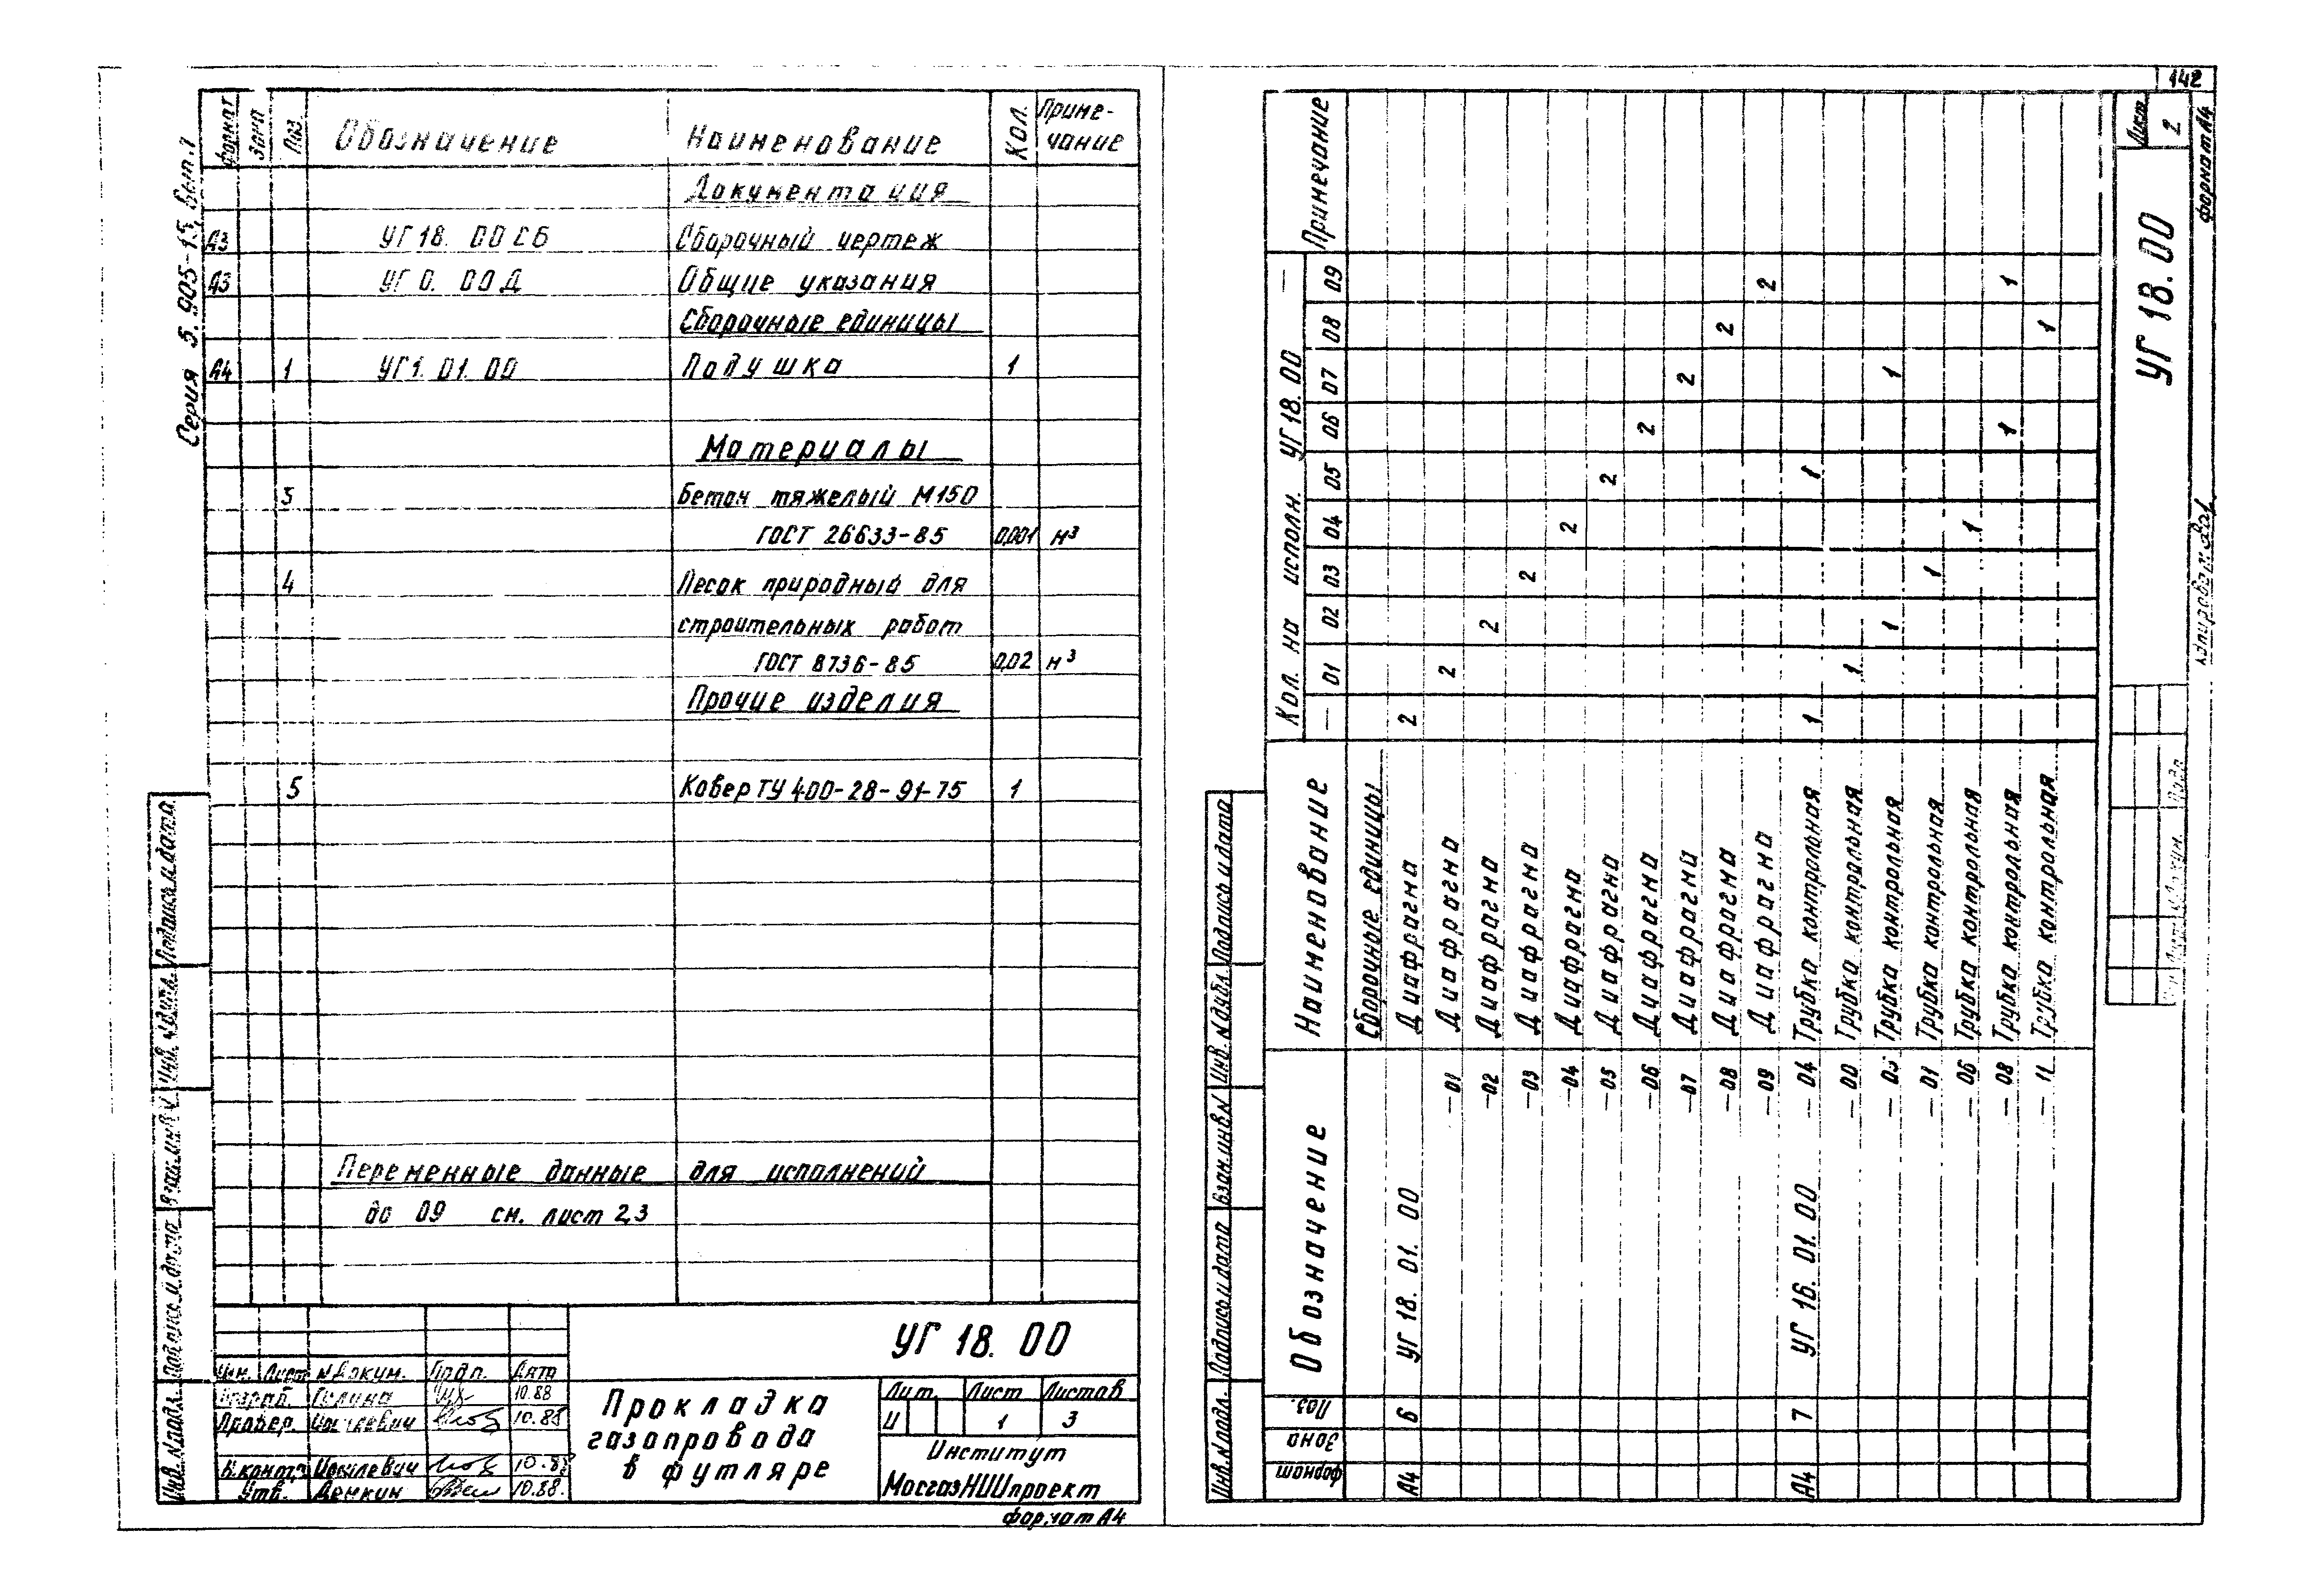 142
Серия 5.905-15 Вып.1
Формат Зона Поз. Обозначение Наименование Кол. Приме-
чание
Документация
А3 УГ 18. 00 СБ Сборочный чертеж
А3 УГ 0. 00 Д Общие указания
Сборочные единицы
А4 1 УГ 1. 01. 00 Подушка 1
Материалы
3 Бетон тяжелый М150
ГОСТ 26633-85 0,001 м³
4 Песок природный для
строительных работ
ГОСТ 8736-85 0,02 м³
Прочие изделия
5 Ковер ТУ 400-28-91-75 1
Переменные данные для исполнений
до 09 см. лист 2,3
Инв. N подл. Подпись и дата Взам. инв N Инв. N дубл. Подпись и дата
УГ 18. 00
Изм. Лист N докум. Подп. Дата
Разраб. Галина 10.88
Провер. Иоселевич 10.88
Н.контр. Иоселевич 10.88
Утв. Денкин 10.88.
Прокладка
газопровода
в футляре
Лит. Лист Листов
И 1 3
Институт
МосгазНИИпроект
формат А4
Формат Зона Поз. Обозначение Наименование Кол. на исполн. УГ 18. 00 — Примечание
— 01 02 03 04 05 06 07 08 09
Сборочные единицы
А4 6 УГ 18. 01. 00 Диафрагма 2
-01 Диафрагма 2
-02 Диафрагма 2
-03 Диафрагма 2
-04 Диафрагма 2
-05 Диафрагма 2
-06 Диафрагма 2
-07 Диафрагма 2
-08 Диафрагма 2
-09 Диафрагма 2
А4 7 УГ 16. 01. 00 - 04 Трубка контрольная 1 1
- 00 Трубка контрольная 1
- 05 Трубка контрольная 1 1
- 01 Трубка контрольная 1
- 06 Трубка контрольная 1
- 08 Трубка контрольная 1 1
- 11 Трубка контрольная 1
Инв. N подл. Подпись и дата Взам инв N Инв. N дубл. Подпись и дата
Лист N докум. Подп.
УГ 18. 00
Лист
2
Копировал:
формат А4